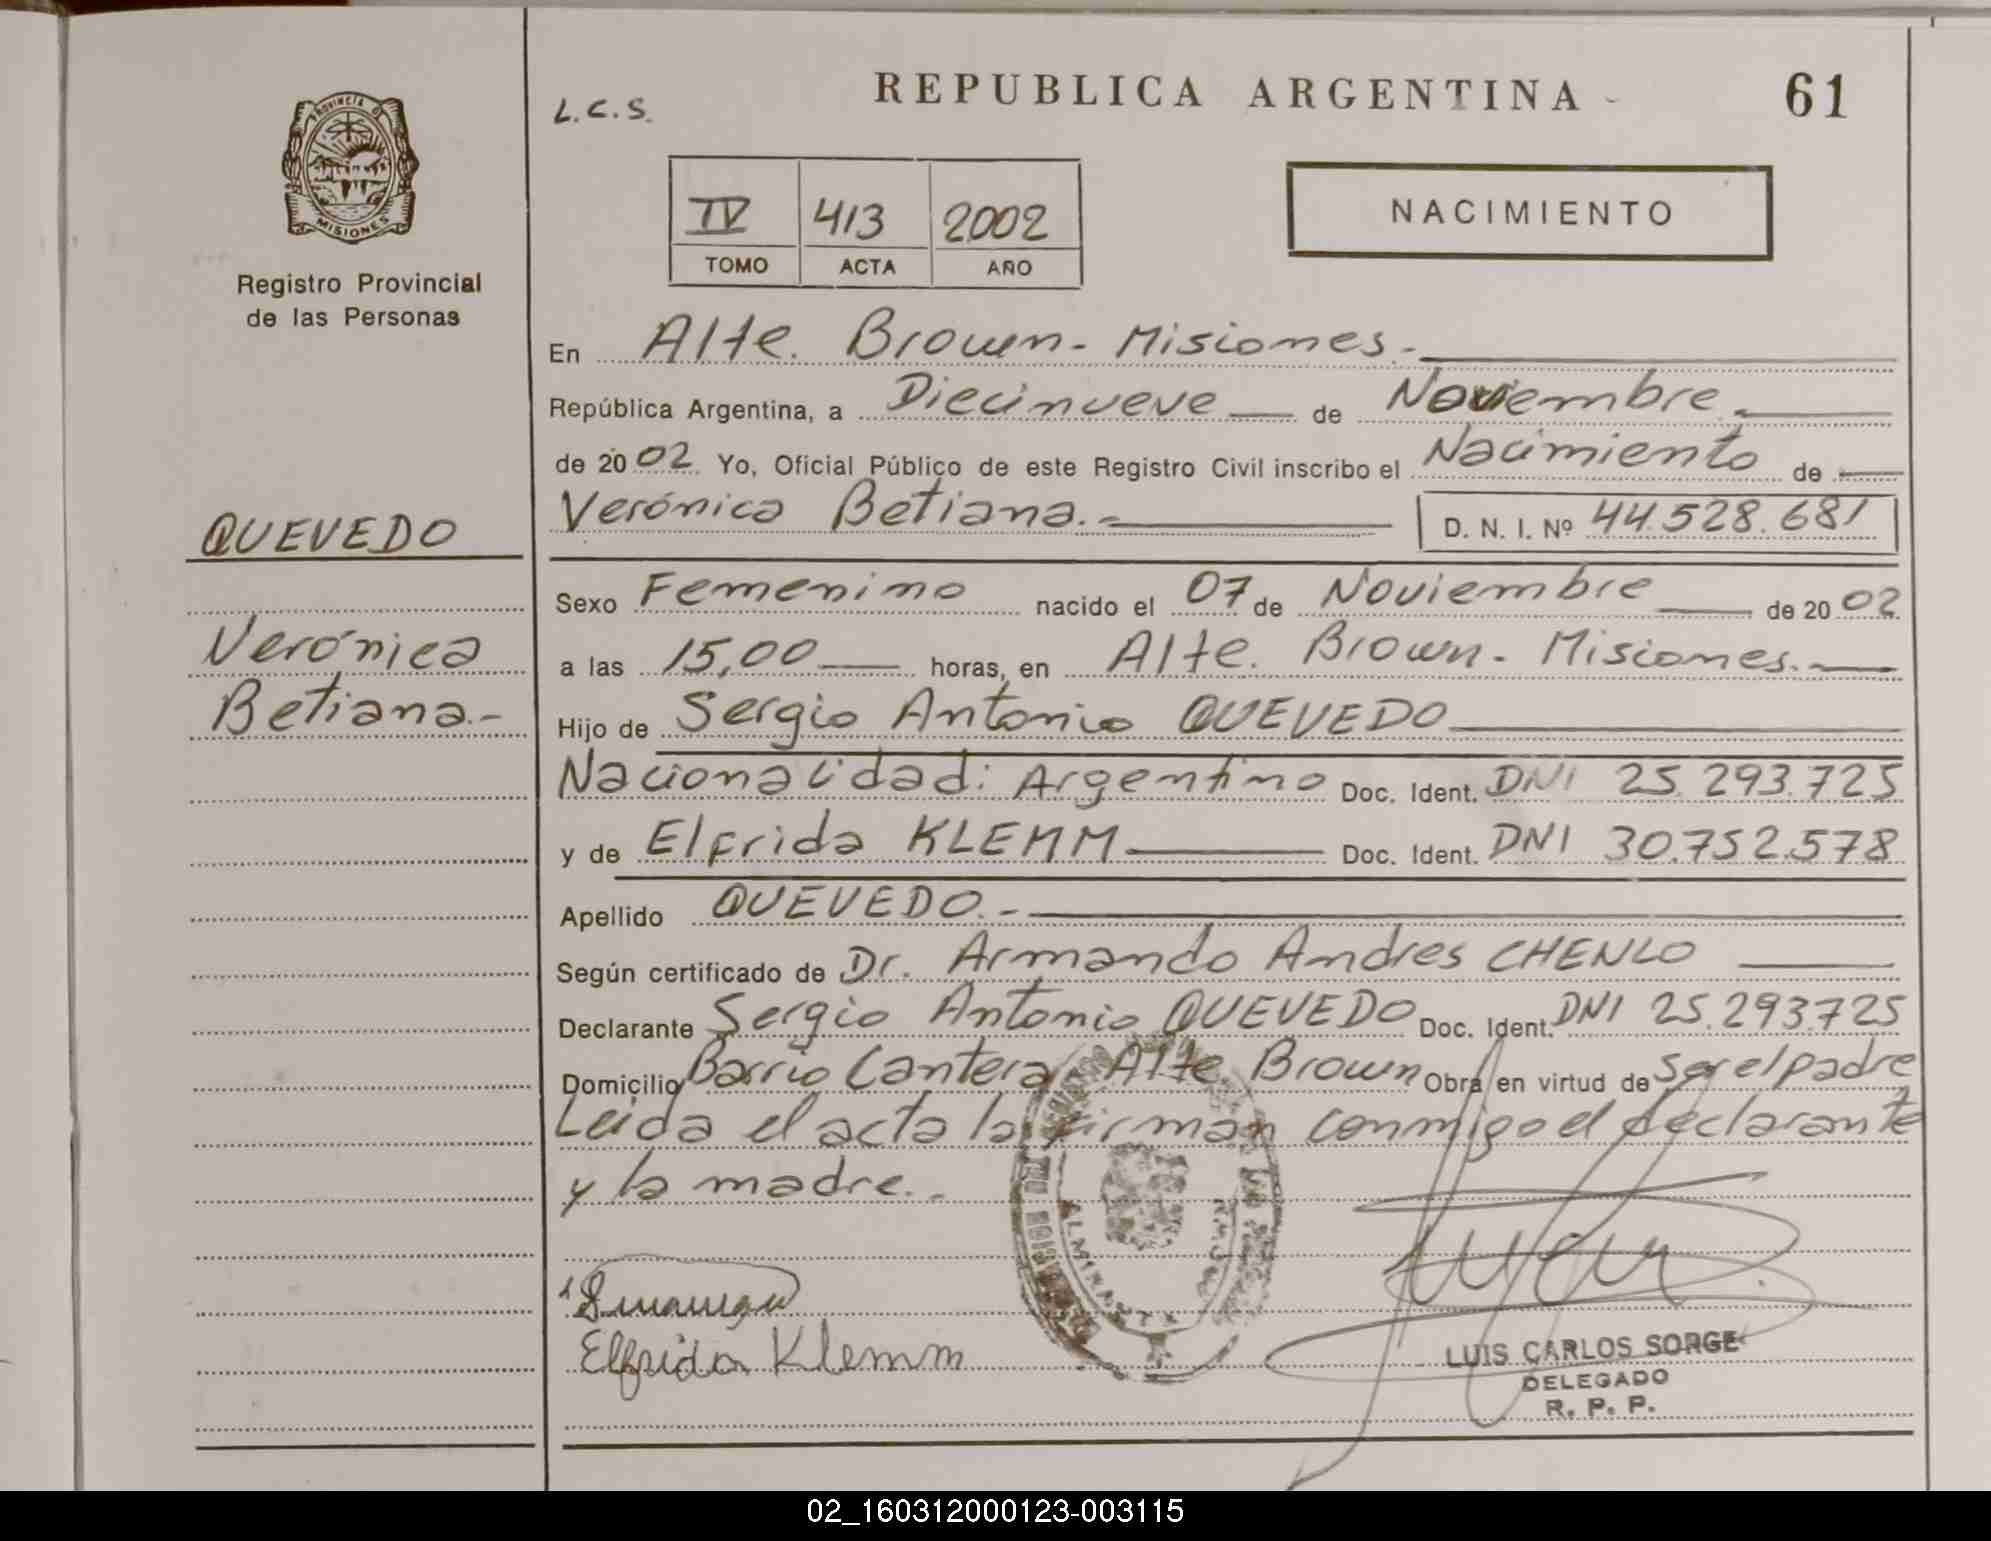 L.C.S.
REPUBLICA ARGENTINA
61
PROVINCIA DE
MISIONES
Registro Provincial
de las Personas
IV 413 2002
TOMO ACTA AÑO
NACIMIENTO
En Alte. Brown - Misiones.-
República Argentina, a Diecinueve de Noviembre.
de 2002 Yo, Oficial Público de este Registro Civil inscribo el Nacimiento de
Verónica Betiana.- D. N. I. Nº 44.528.681
QUEVEDO
Verónica
Betiana.-
Sexo Femenino nacido el 07 de Noviembre de 2002
a las 15,00 horas, en Alte. Brown - Misiones.-
Hijo de Sergio Antonio QUEVEDO
Nacionalidad: Argentino Doc. Ident. DNI 25.293.725
y de Elfrida KLEMM Doc. Ident. DNI 30.752.578
Apellido QUEVEDO.-
Según certificado de Dr. Armando Andres CHENLO
Declarante Sergio Antonio QUEVEDO Doc. Ident. DNI 25.293.725
Domicilio Barrio Cantera Alte Brown Obra en virtud de ser el padre
Leida el acta la firman conmigo el declarante
y la madre..
ALMIRANTE
Elfrida Klemm
LUIS CARLOS SORGE
DELEGADO
R. P. P.
02_160312000123-003115